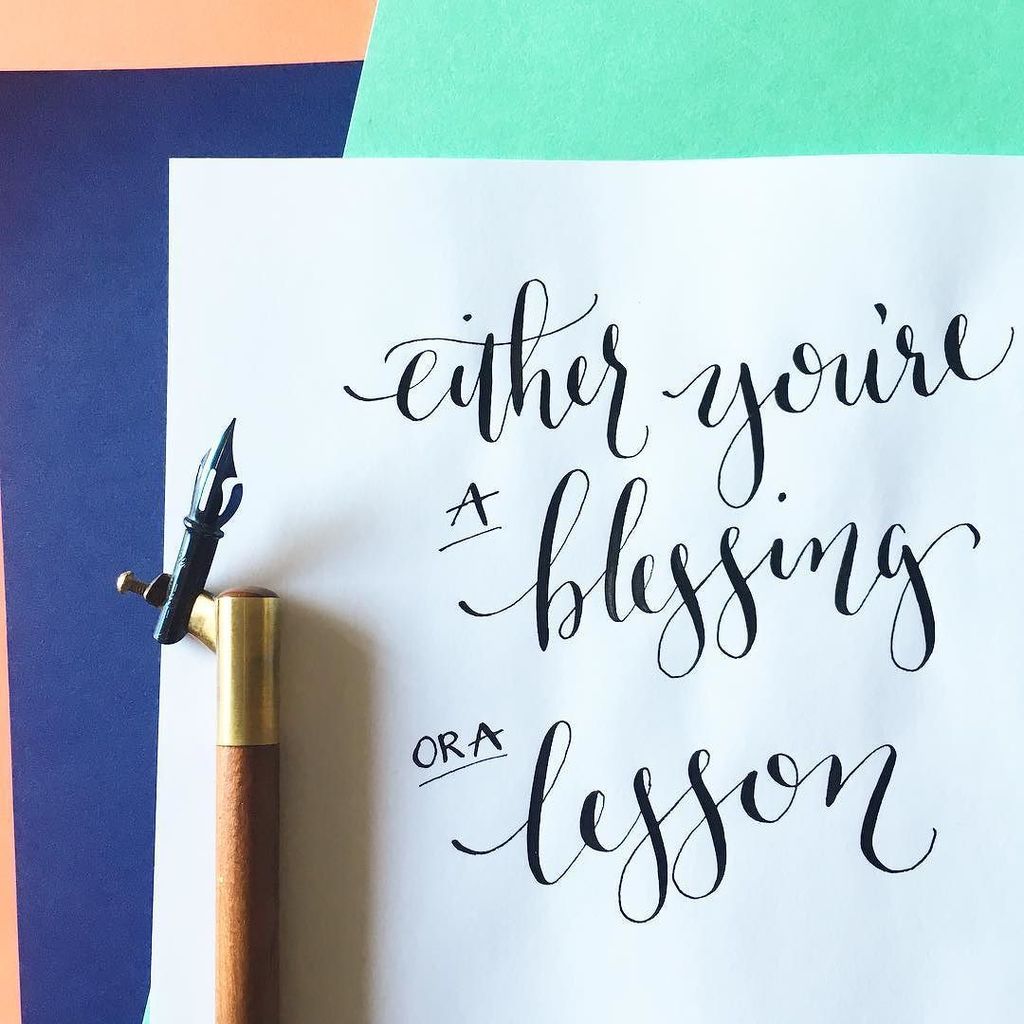 either you're
A blessing
OR A lesson